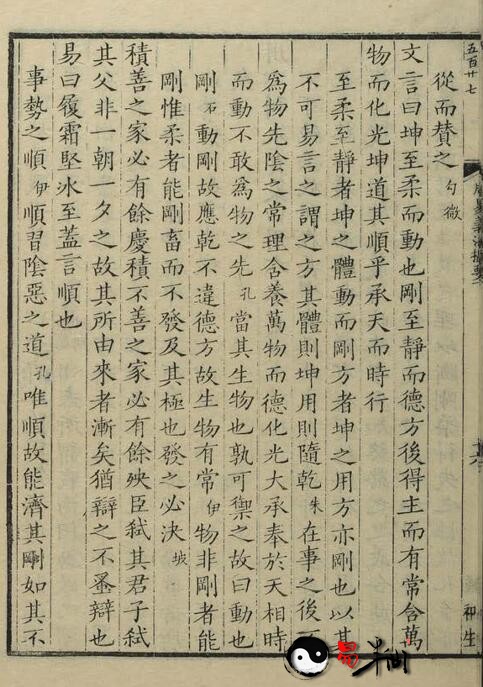 五百廿七
從而賛之 勾微
文言曰坤至柔而動也剛至靜而德方後得主而有常含萬
物而化光坤道其順乎承天而時行
至柔至靜者坤之體動而剛方者坤之用方亦剛也以其
不可易言之謂之方其體則坤用則隨乾 朱 在事之後
爲物先陰之常理含養萬物而德化光大承奉於天相時
而動不敢爲物之先 孔 當其生物也孰可禦之故曰動也
剛 石 動剛故應乾不違德方故生物有常 伊 物非剛者能
剛惟柔者能剛畜而不發及其極也發之必決 坡
積善之家必有餘慶積不善之家必有餘殃臣弑其君子弑
其父非一朝一夕之故其所由來者漸矣猶辯之不蚤辯也
易曰履霜堅冰至蓋言順也
事勢之順 伊 順習陰惡之道 孔 唯順故能濟其剛如其不
和生
易